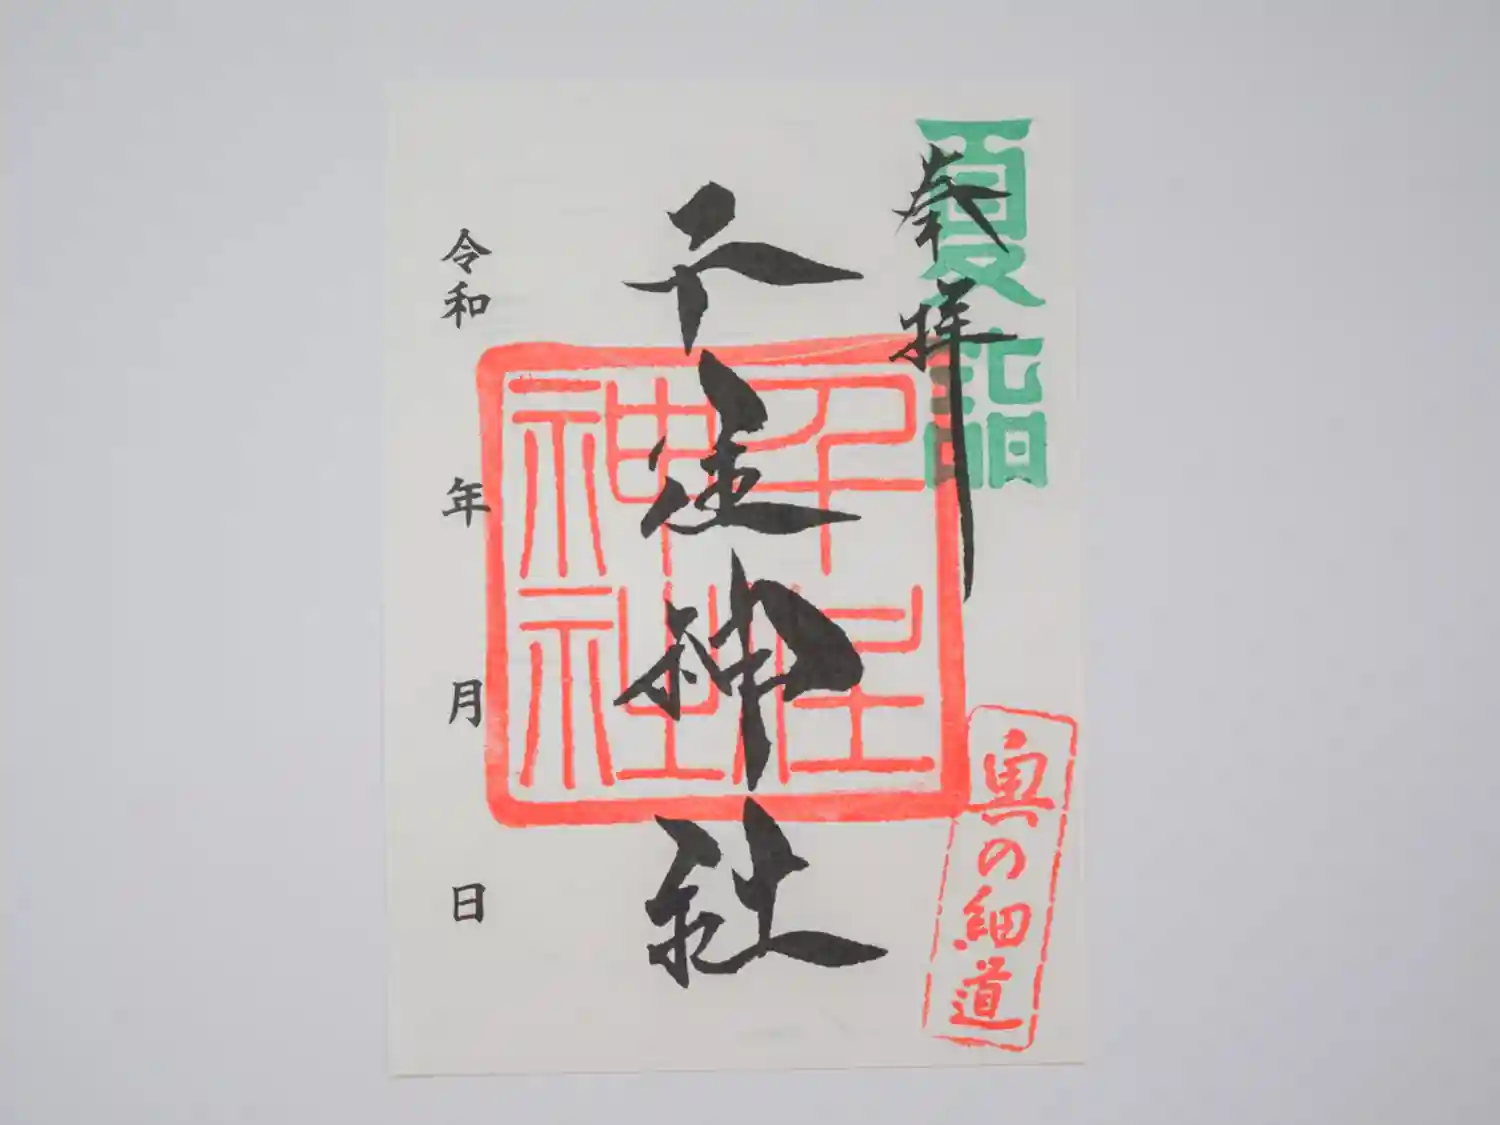 夏詣
奉拝
千住神社
千住
神社
奥の細道
令和 年 月 日